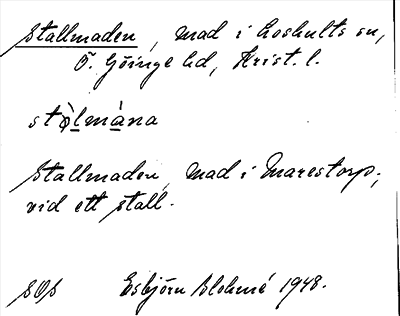 Stallmaden, mad i Loshults sn,
Ö. Göinge hd, Krist. l.
sto̖lmàna
Stallmaden, mad i Marestorp;
vid ett stall.
SOS Esbjörn Blohmé 1948.